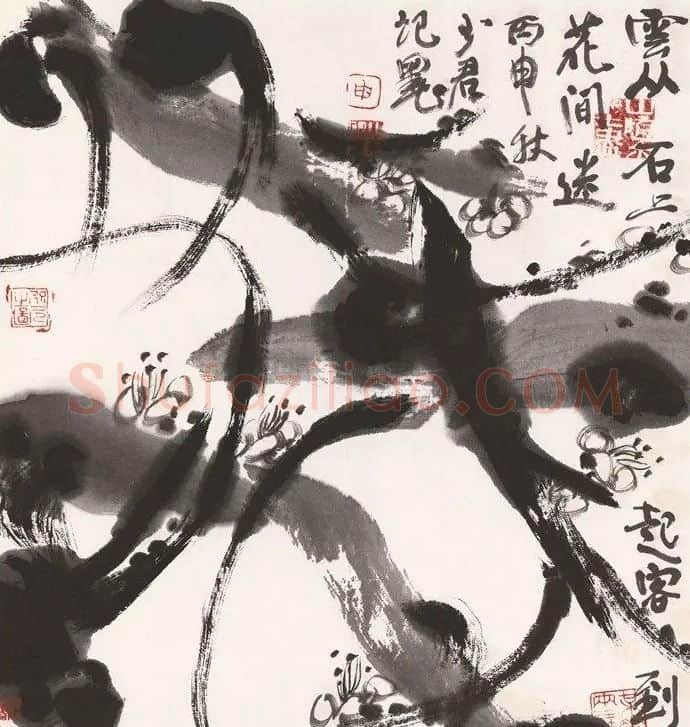 雲从石上起客到
花间迷
丙申秋
少君
记墨
Shufaziliao.COM